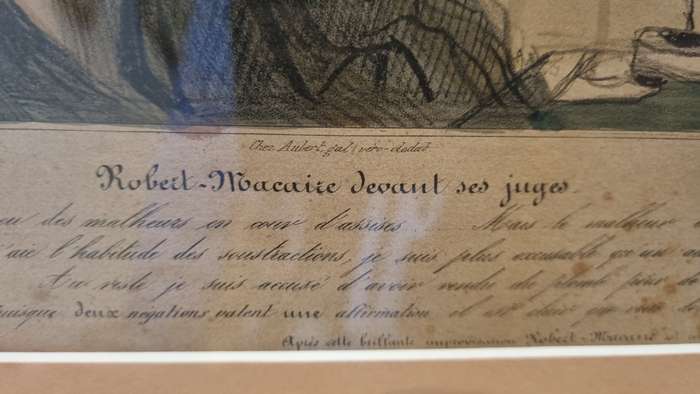 Chez Aubert, gal. véro-dodat.
Robert-Macaire devant ses juges.
eu des malheurs en cour d'assises. Mais le malheur
aie l'habitude des soustractions, je suis plus excusable qu'un
Au reste je suis accusé d'avoir vendu du plomb pour
puisque deux négations valent une affirmation, il est clair
Après cette brillante improvisation Robert-Macaire est